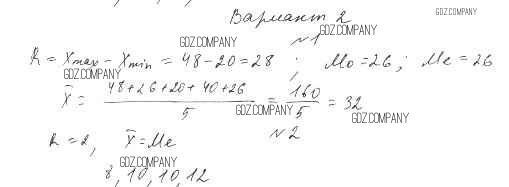 Вариант 2
GDZ.COMPANY
N1
GDZ.COMPANY
GDZ.COMPANY
R = Xmax - Xmin = 48-20=28 ; Mo=26; Me=26
GDZ.COMPANY
X̄ = (48+26+20+40+26)/5 = 160/5 = 32
GDZ.COMPANY
GDZ.COMPANY
N2
R=2, X̄=Me
GDZ.COMPANY
8, 10, 10, 12